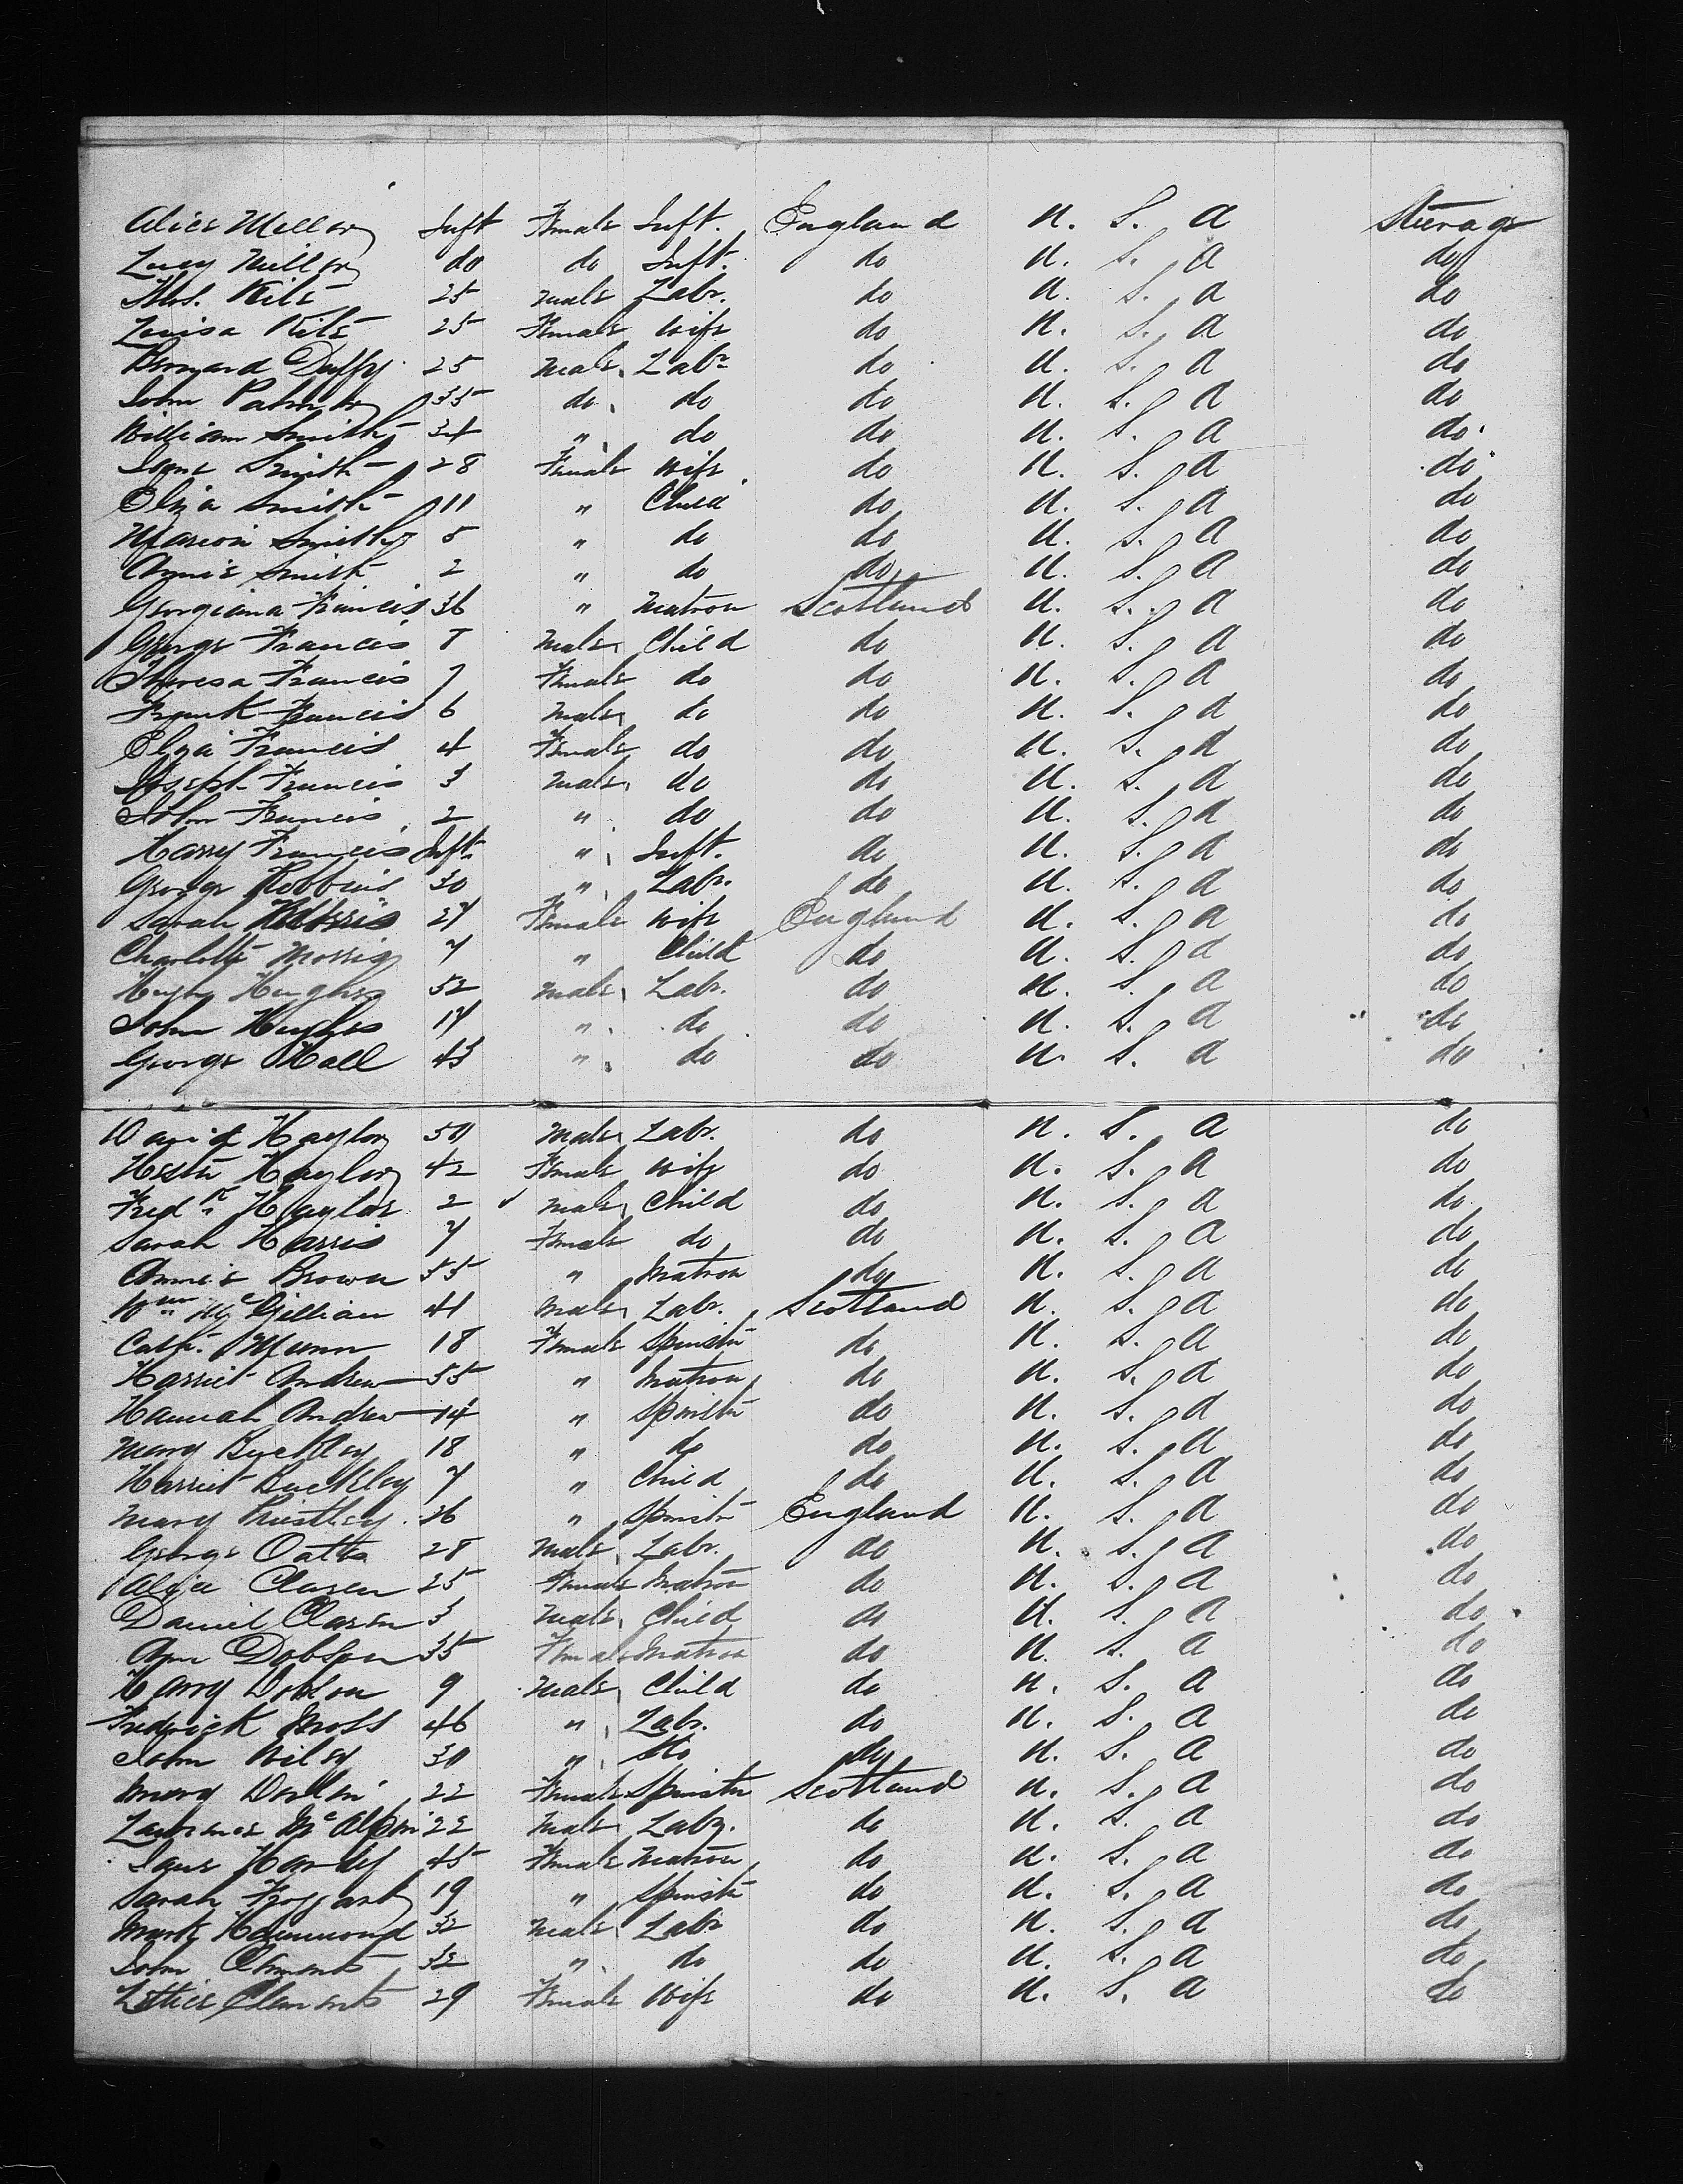 Alice Millor Inft Female Inft. England U. S. A Steerage
Lucy Millor do do Inft. do U. S. A do
Thos. Kite 25 Male Labr. do U. S. A do
Louisa Kite 25 Female Wife do U. S. A do
Bernard Duffy 25 Male Labr do U. S. A do
John Palmer 35 do do do U. S. A do
William Smith 34 " do do U. S. A do
Jane Smith 28 Female Wife do U. S. A do
Eliza Smith 11 " Child do U. S. A do
Marion Smith 5 " do do U. S. A do
Annie Smith 2 " do do U. S. A do
Georgiana Francis 36 " Matron Scotland U. S. A do
George Francis 8 Male Child do U. S. A do
Theresa Francis 7 Female do do U. S. A do
Frank Francis 6 Male do do U. S. A do
Eliza Francis 4 Female do do U. S. A do
Joseph Francis 3 Male do do U. S. A do
John Francis 2 " do do U. S. A do
Harry Francis Inft. " Inft. do U. S. A do
George Robbins 30 " Labr. do U. S. A do
Sarah 27 Female Wife England U. S. A do
Charlotte Morris 7 " Child do U. S. A do
Hugh Hughes 52 Male Labr. do U. S. A do
John Hughes 17 " do do U. S. A do
George Hall 43 " do do U. S. A do
David Haylor 50 Male Labr. do U. S. A do
Hester Haylor 42 Female Wife do U. S. A do
Fredk Haylor 2 Male Child do U. S. A do
Sarah Harris 7 Female do do U. S. A do
Annie Brown 55 " Matron do U. S. A do
Wm McGillian 41 Male Labr. Scotland U. S. A do
Cath. Munn 18 Female Spinster do U. S. A do
Harriet Andrew 55 " Matron do U. S. A do
Hannah Andrew 14 " Spinster do U. S. A do
Mary Buckley 18 " do do U. S. A do
Harriet Buckley 7 " Child do U. S. A do
Mary Priestley 26 " Spinstr England U. S. A do
George Oatts 28 Male Labr. do U. S. A do
Alice Claren 25 Female Matron do U. S. A do
Daniel Claren 3 Male Child do U. S. A do
Ann Dobson 35 Female Matron do U. S. A do
Harry Dobson 9 Male Child do U. S. A do
Fredrick Moss 46 " Labr. do U. S. A do
John Riley 30 " do do U. S. A do
Mary 22 Female Spinster Scotland U. S. A do
Lawrence McAlpin 22 Male Labr. do U. S. A do
Jane Hardy 45 Female Matron do U. S. A do
Sarah Foggart 19 " Spinstr do U. S. A do
Mark Hammond 32 Male Labr do U. S. A do
John Clements 32 " do do U. S. A do
Lettice Clements 29 Female Wife do U. S. A do